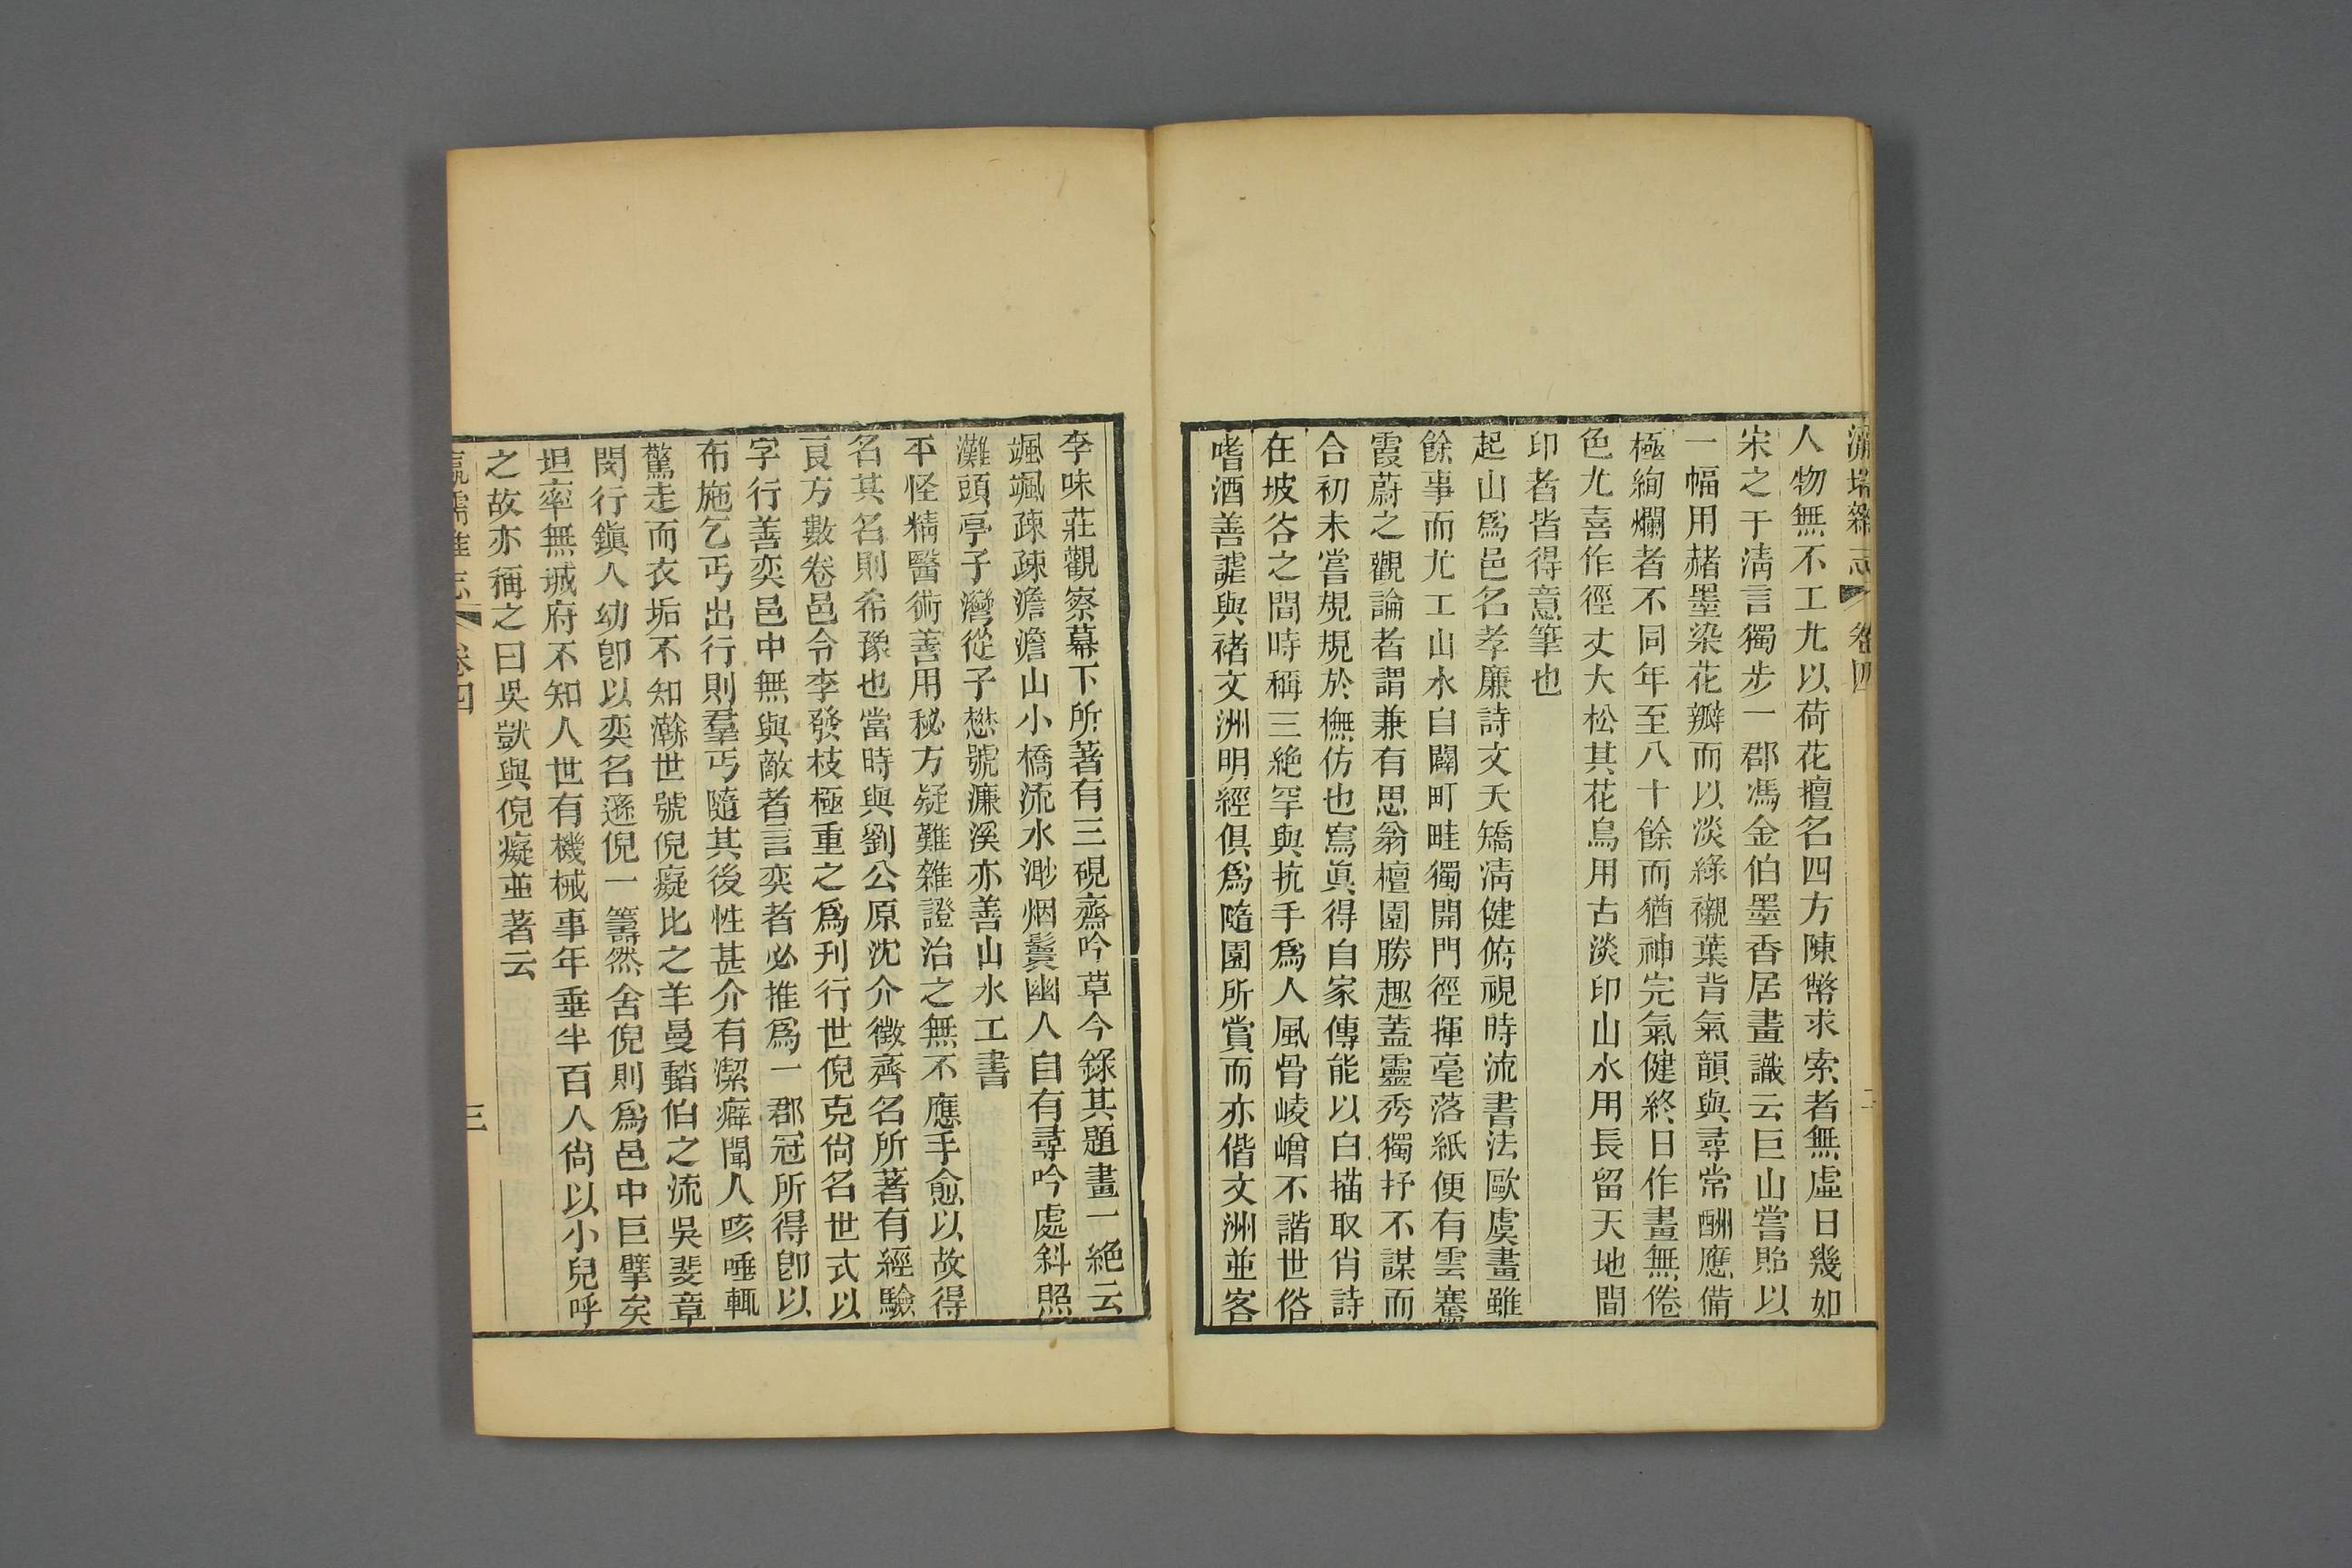 瀛壖雜志 卷四
人物無不工尤以荷花擅名四方陳幣求索者無虛日幾如
宋之于淸言獨步一郡馮金伯墨香居畫識云巨山嘗貽以
一幅用赭墨染花瓣而以淡綠襯葉背氣韻與尋常酬應備
極絢爛者不同年至八十餘而猶神完氣健終日作畫無倦
色尤喜作徑丈大松其花鳥用古淡印山水用長留天地間
印者皆得意筆也
起山爲邑名孝廉詩文夭矯淸健俯視時流書法歐虞畫雖
餘事而尤工山水自闢町畦獨開門徑揮毫落紙便有雲騫
霞蔚之觀論者謂兼有思翁檀園勝趣蓋靈秀獨抒不謀而
合初未嘗規規於橅仿也寫眞得自家傳能以白描取肖詩
在坡谷之間時稱三絶罕與抗手爲人風骨崚嶒不諧世俗
嗜酒善謔與褚文洲明經俱爲隨園所賞而亦偕文洲並客
李味莊觀察幕下所著有三硯齋吟草今錄其題畫一絶云
颯颯疎疎澹澹山小橋流水渺烟鬟幽人自有尋吟處斜照
灘頭亭子灣從子懋號濂溪亦善山水工書
平怪精醫術善用秘方疑難雜證治之無不應手愈以故得
名其名則希豫也當時與劉公原沈介徵齊名所著有經驗
良方數卷邑令李發枝極重之爲刋行世倪克尙名世式以
字行善奕邑中無與敵者言奕者必推爲一郡冠所得卽以
布施乞丐出行則羣丐隨其後性甚介有潔癖聞人咳唾輒
驚走而衣垢不知澣世號倪癡比之羊曼䶀伯之流吳斐章
閔行鎭人幼卽以奕名遜倪一籌然舍倪則爲邑中巨擘矣
坦率無城府不知人世有機械事年垂半百人尙以小兒呼
之故亦稱之曰吳獃與倪癡並著云
瀛壖雜志 卷四 三